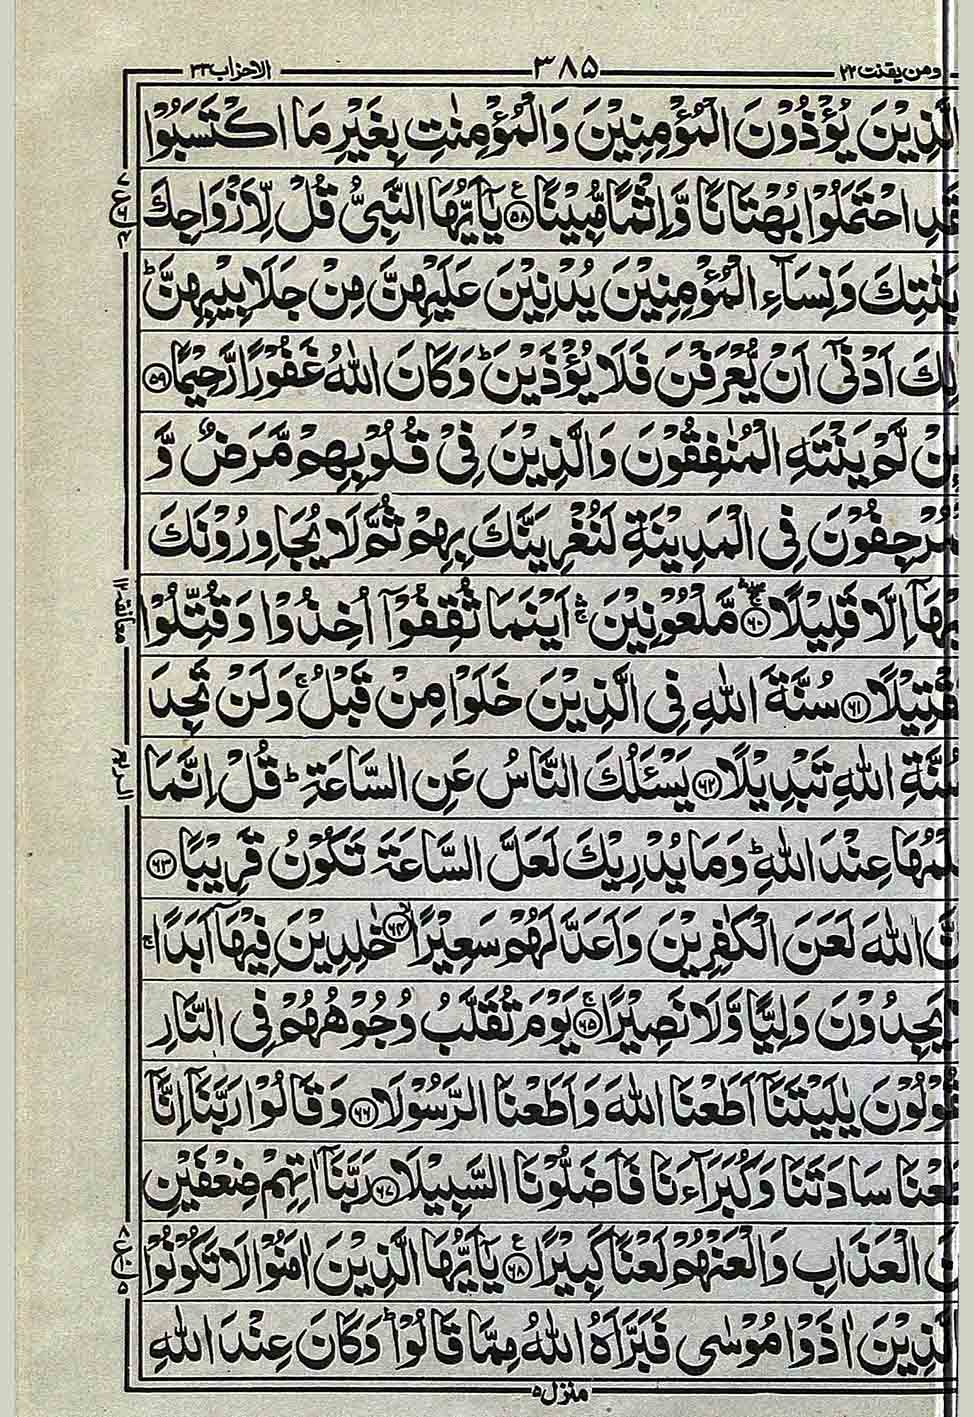 ومن یقنت ۲۲ ۳۸۵ الاحزاب ۳۳
الَّذِيْنَ يُؤْذُوْنَ الْمُؤْمِنِيْنَ وَالْمُؤْمِنٰتِ بِغَيْرِ مَا اكْتَسَبُوْا
فَقَدِ احْتَمَلُوْا بُهْتَانًا وَّاِثْمًا مُّبِيْنًا ﴿۵۸﴾ يٰۤاَيُّهَا النَّبِيُّ قُلْ لِّاَزْوَاجِكَ
بَنٰتِكَ وَنِسَآءِ الْمُؤْمِنِيْنَ يُدْنِيْنَ عَلَيْهِنَّ مِنْ جَلَابِيْبِهِنَّ ؕ
لِكَ اَدْنٰۤى اَنْ يُّعْرَفْنَ فَلَا يُؤْذَيْنَ ؕ وَكَانَ اللّٰهُ غَفُوْرًا رَّحِيْمًا ﴿۵۹﴾
ىِٕنْ لَّمْ يَنْتَهِ الْمُنٰفِقُوْنَ وَالَّذِيْنَ فِيْ قُلُوْبِهِمْ مَّرَضٌ وَّ
مُرْجِفُوْنَ فِي الْمَدِيْنَةِ لَنُغْرِيَنَّكَ بِهِمْ ثُمَّ لَا يُجَاوِرُوْنَكَ
يْهَاۤ اِلَّا قَلِيْلًا ﴿۶۰﴾ مَّلْعُوْنِيْنَ ۛۚ اَيْنَمَا ثُقِفُوْۤا اُخِذُوْا وَقُتِّلُوْا
قْتِيْلًا ﴿۶۱﴾ سُنَّةَ اللّٰهِ فِي الَّذِيْنَ خَلَوْا مِنْ قَبْلُ ۚ وَلَنْ تَجِدَ
سُنَّةِ اللّٰهِ تَبْدِيْلًا ﴿۶۲﴾ يَسْـَٔلُكَ النَّاسُ عَنِ السَّاعَةِ ؕ قُلْ اِنَّمَا
لْمُهَا عِنْدَ اللّٰهِ ؕ وَمَا يُدْرِيْكَ لَعَلَّ السَّاعَةَ تَكُوْنُ قَرِيْبًا ﴿۶۳﴾
نَّ اللّٰهَ لَعَنَ الْكٰفِرِيْنَ وَاَعَدَّ لَهُمْ سَعِيْرًا ﴿۶۴﴾ خٰلِدِيْنَ فِيْهَاۤ اَبَدًا ۚ
يَجِدُوْنَ وَلِيًّا وَّلَا نَصِيْرًا ﴿۶۵﴾ يَوْمَ تُقَلَّبُ وُجُوْهُهُمْ فِي النَّارِ
قُوْلُوْنَ يٰلَيْتَنَاۤ اَطَعْنَا اللّٰهَ وَاَطَعْنَا الرَّسُوْلَا ﴿۶۶﴾ وَقَالُوْا رَبَّنَاۤ اِنَّاۤ
طَعْنَا سَادَتَنَا وَكُبَرَآءَنَا فَاَضَلُّوْنَا السَّبِيْلَا ﴿۶۷﴾ رَبَّنَاۤ اٰتِهِمْ ضِعْفَيْنِ
نَ الْعَذَابِ وَالْعَنْهُمْ لَعْنًا كَبِيْرًا ﴿۶۸﴾ يٰۤاَيُّهَا الَّذِيْنَ اٰمَنُوْا لَا تَكُوْنُوْا
لَّذِيْنَ اٰذَوْا مُوْسٰى فَبَرَّاَهُ اللّٰهُ مِمَّا قَالُوْا ؕ وَكَانَ عِنْدَ اللّٰهِ
منزل ۵
۷ ع ۶ ۴
معانقة ۱۲
الربع
۸ ع ۱۰ ۵